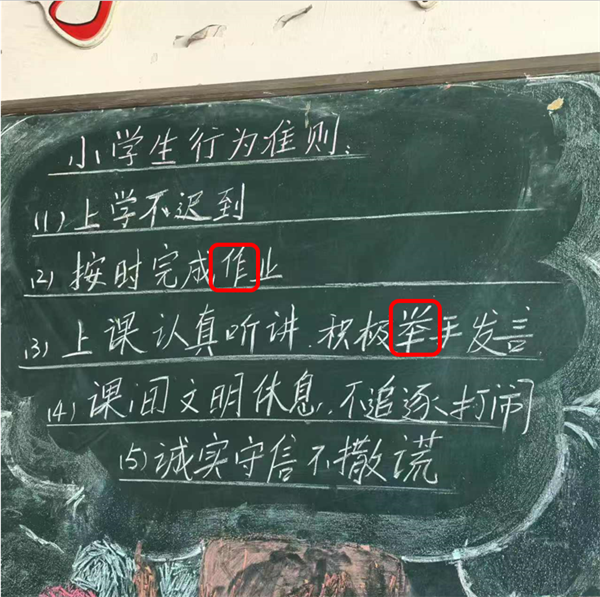 小学生行为准则:
(1)上学不迟到
(2)按时完成作业
(3)上课认真听讲.积极举手发言
(4)课间文明休息,不追逐打闹
(5)诚实守信不撒谎